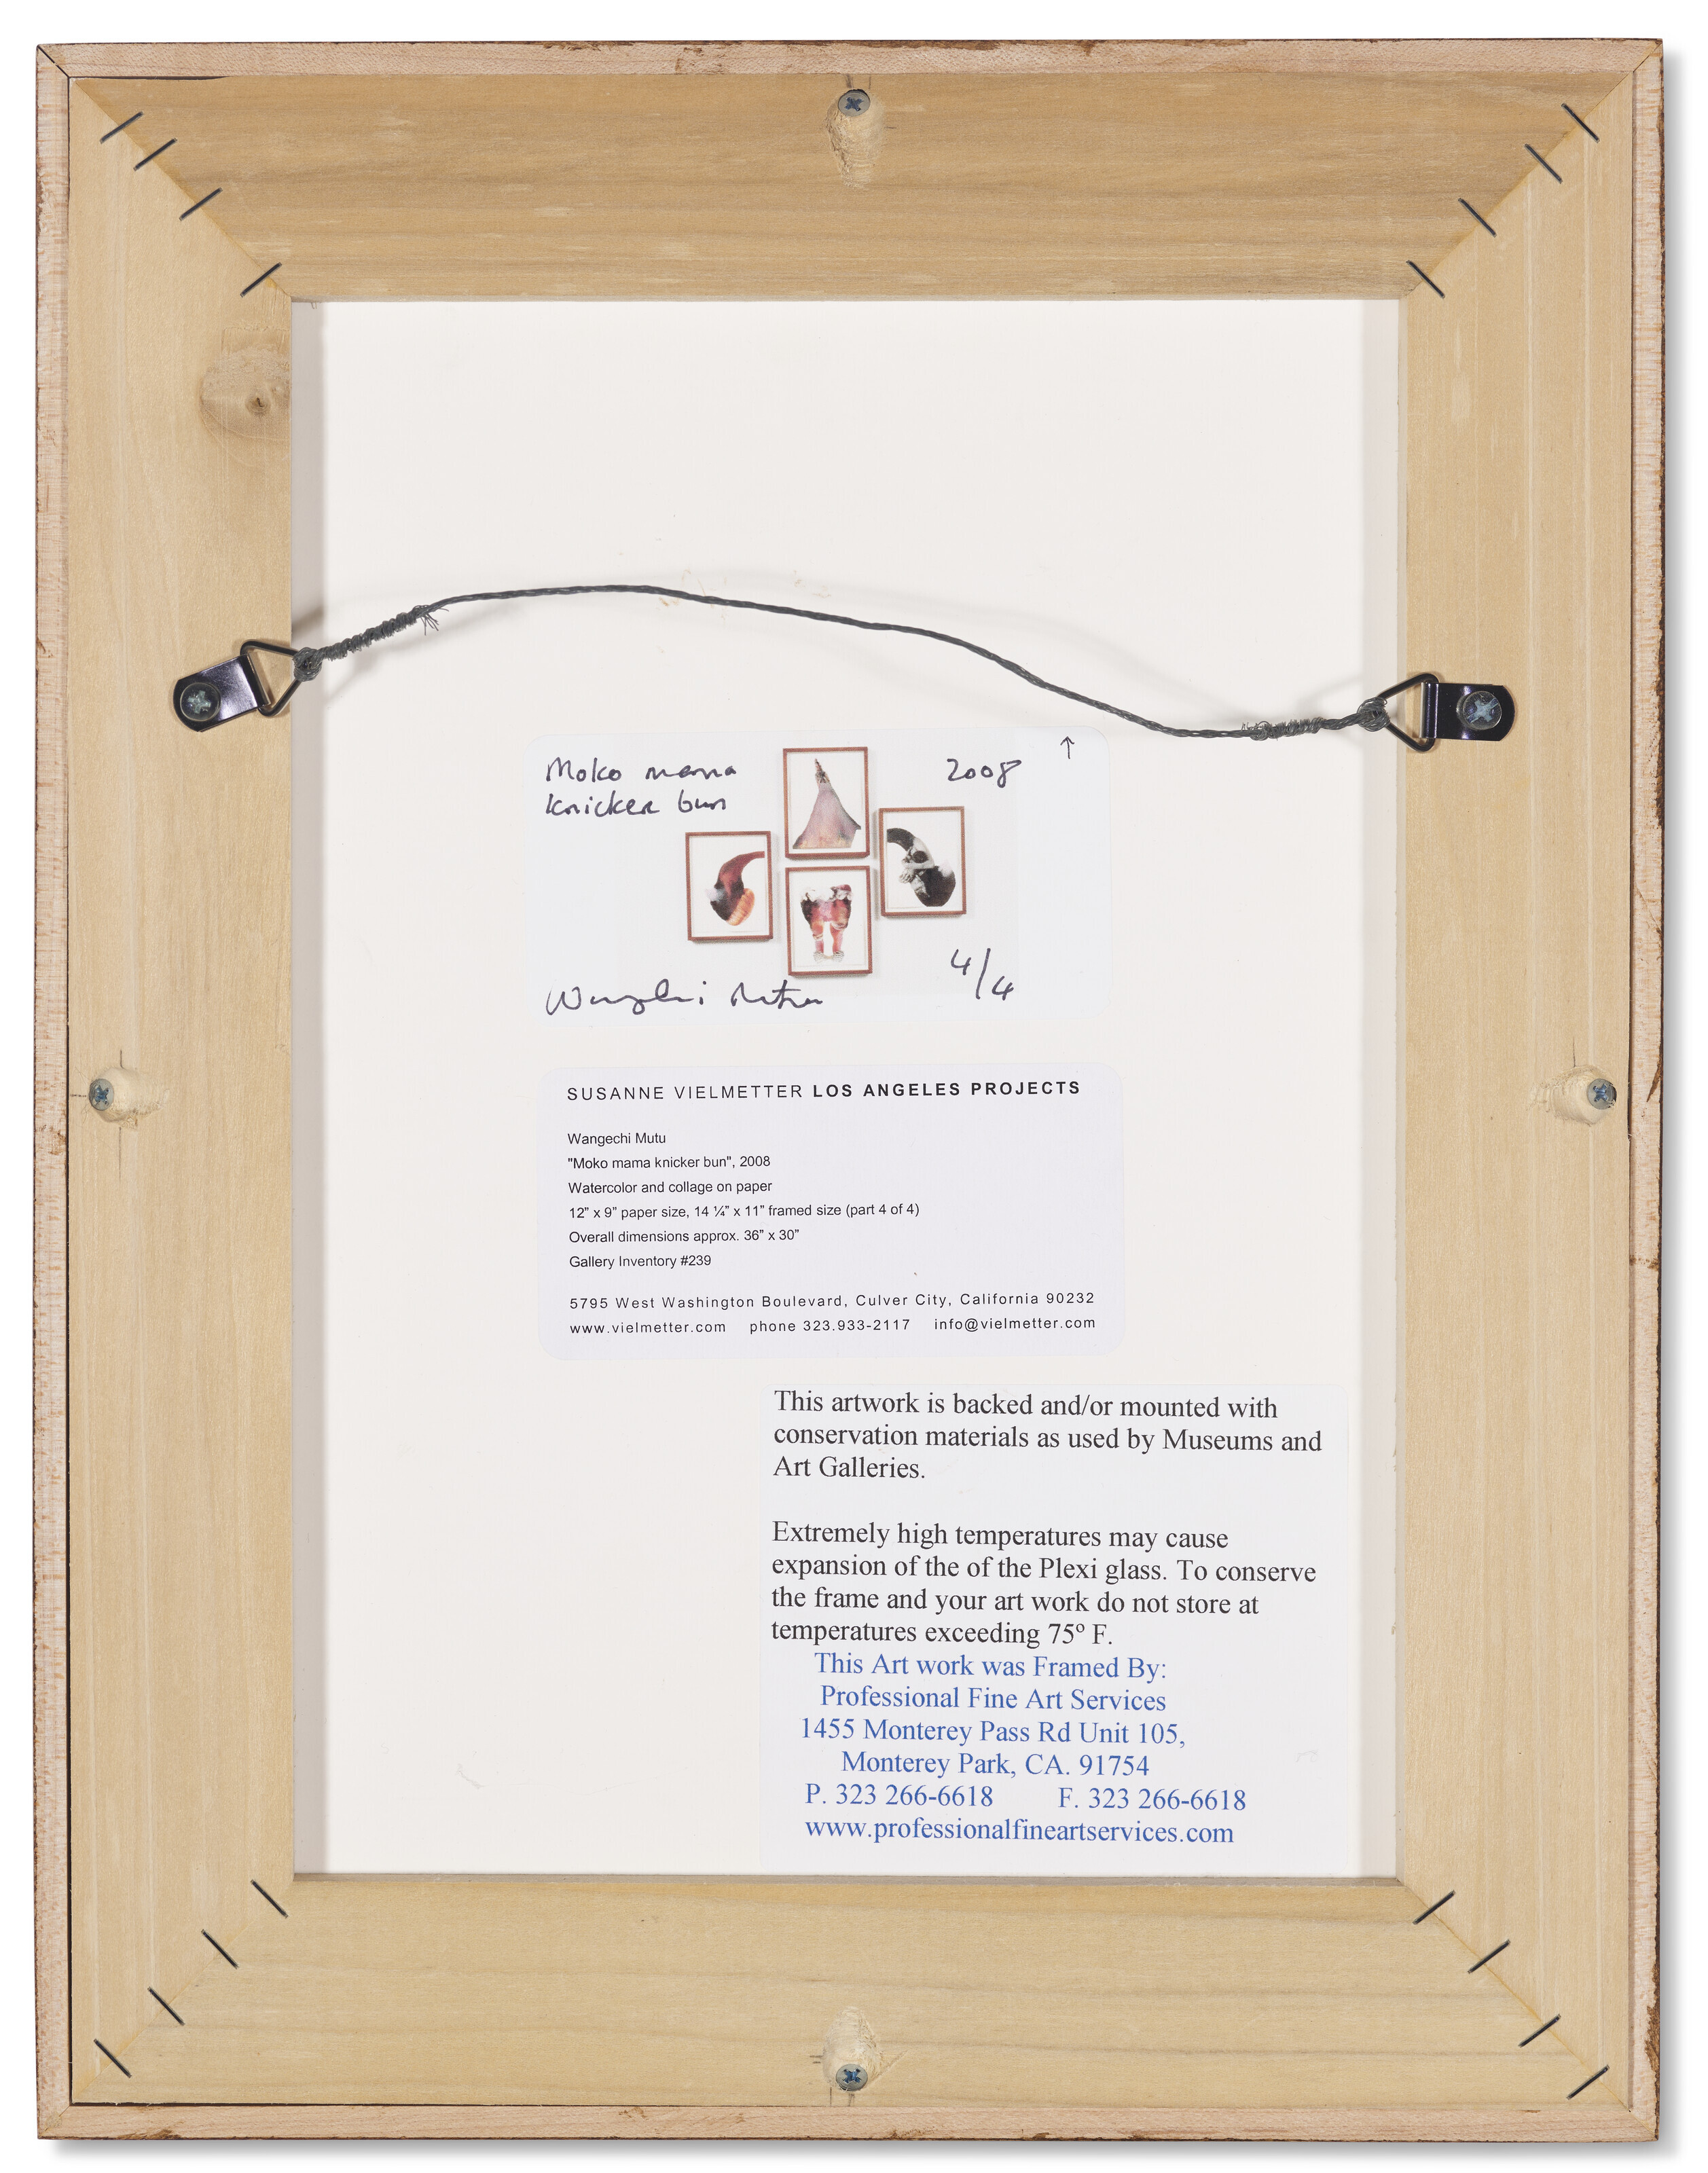 Moko mama
knicker bun
2008
Wangechi Mutu
4/4
SUSANNE VIELMETTER LOS ANGELES PROJECTS
Wangechi Mutu
"Moko mama knicker bun", 2008
Watercolor and collage on paper
12” x 9” paper size, 14 ¼” x 11” framed size (part 4 of 4)
Overall dimensions approx. 36” x 30”
Gallery Inventory #239
5795 West Washington Boulevard, Culver City, California 90232
www.vielmetter.com phone 323.933-2117 info@vielmetter.com
This artwork is backed and/or mounted with
conservation materials as used by Museums and
Art Galleries.
Extremely high temperatures may cause
expansion of the of the Plexi glass. To conserve
the frame and your art work do not store at
temperatures exceeding 75º F.
This Art work was Framed By:
Professional Fine Art Services
1455 Monterey Pass Rd Unit 105,
Monterey Park, CA. 91754
P. 323 266-6618 F. 323 266-6618
www.professionalfineartservices.com